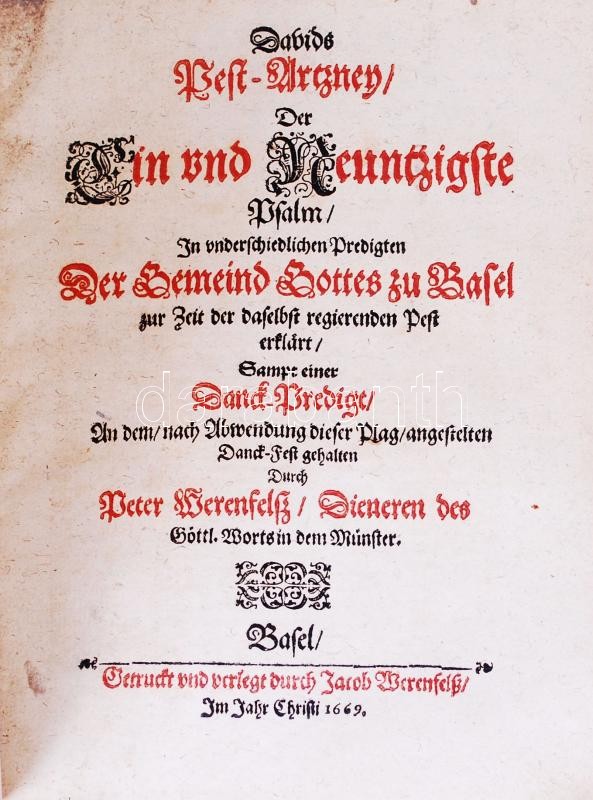 Davids
Pest-Artzney/
Der
Ein vnd Neuntzigste
Psalm/
In vnderschiedlichen Predigten
Der Gemeind Gottes zu Basel
zur Zeit der daselbst regierenden Pest
erklärt/
Sampt einer
Danck-Predigt/
An dem/nach Abwendung dieser Plag/angestelten
Danck-Fest gehalten
Durch
Peter Werenfelß/ Dieneren des
Göttl. Worts in dem Münster.
Basel/
Getruckt vnd verlegt durch Jacob Werenfelß/
Im Jahr Christi 1669.